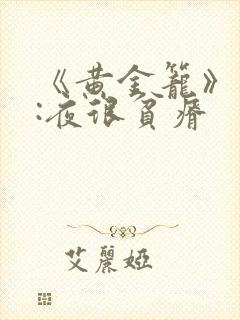 《黄金籠》
:夜很貧瘠
艾麗婭